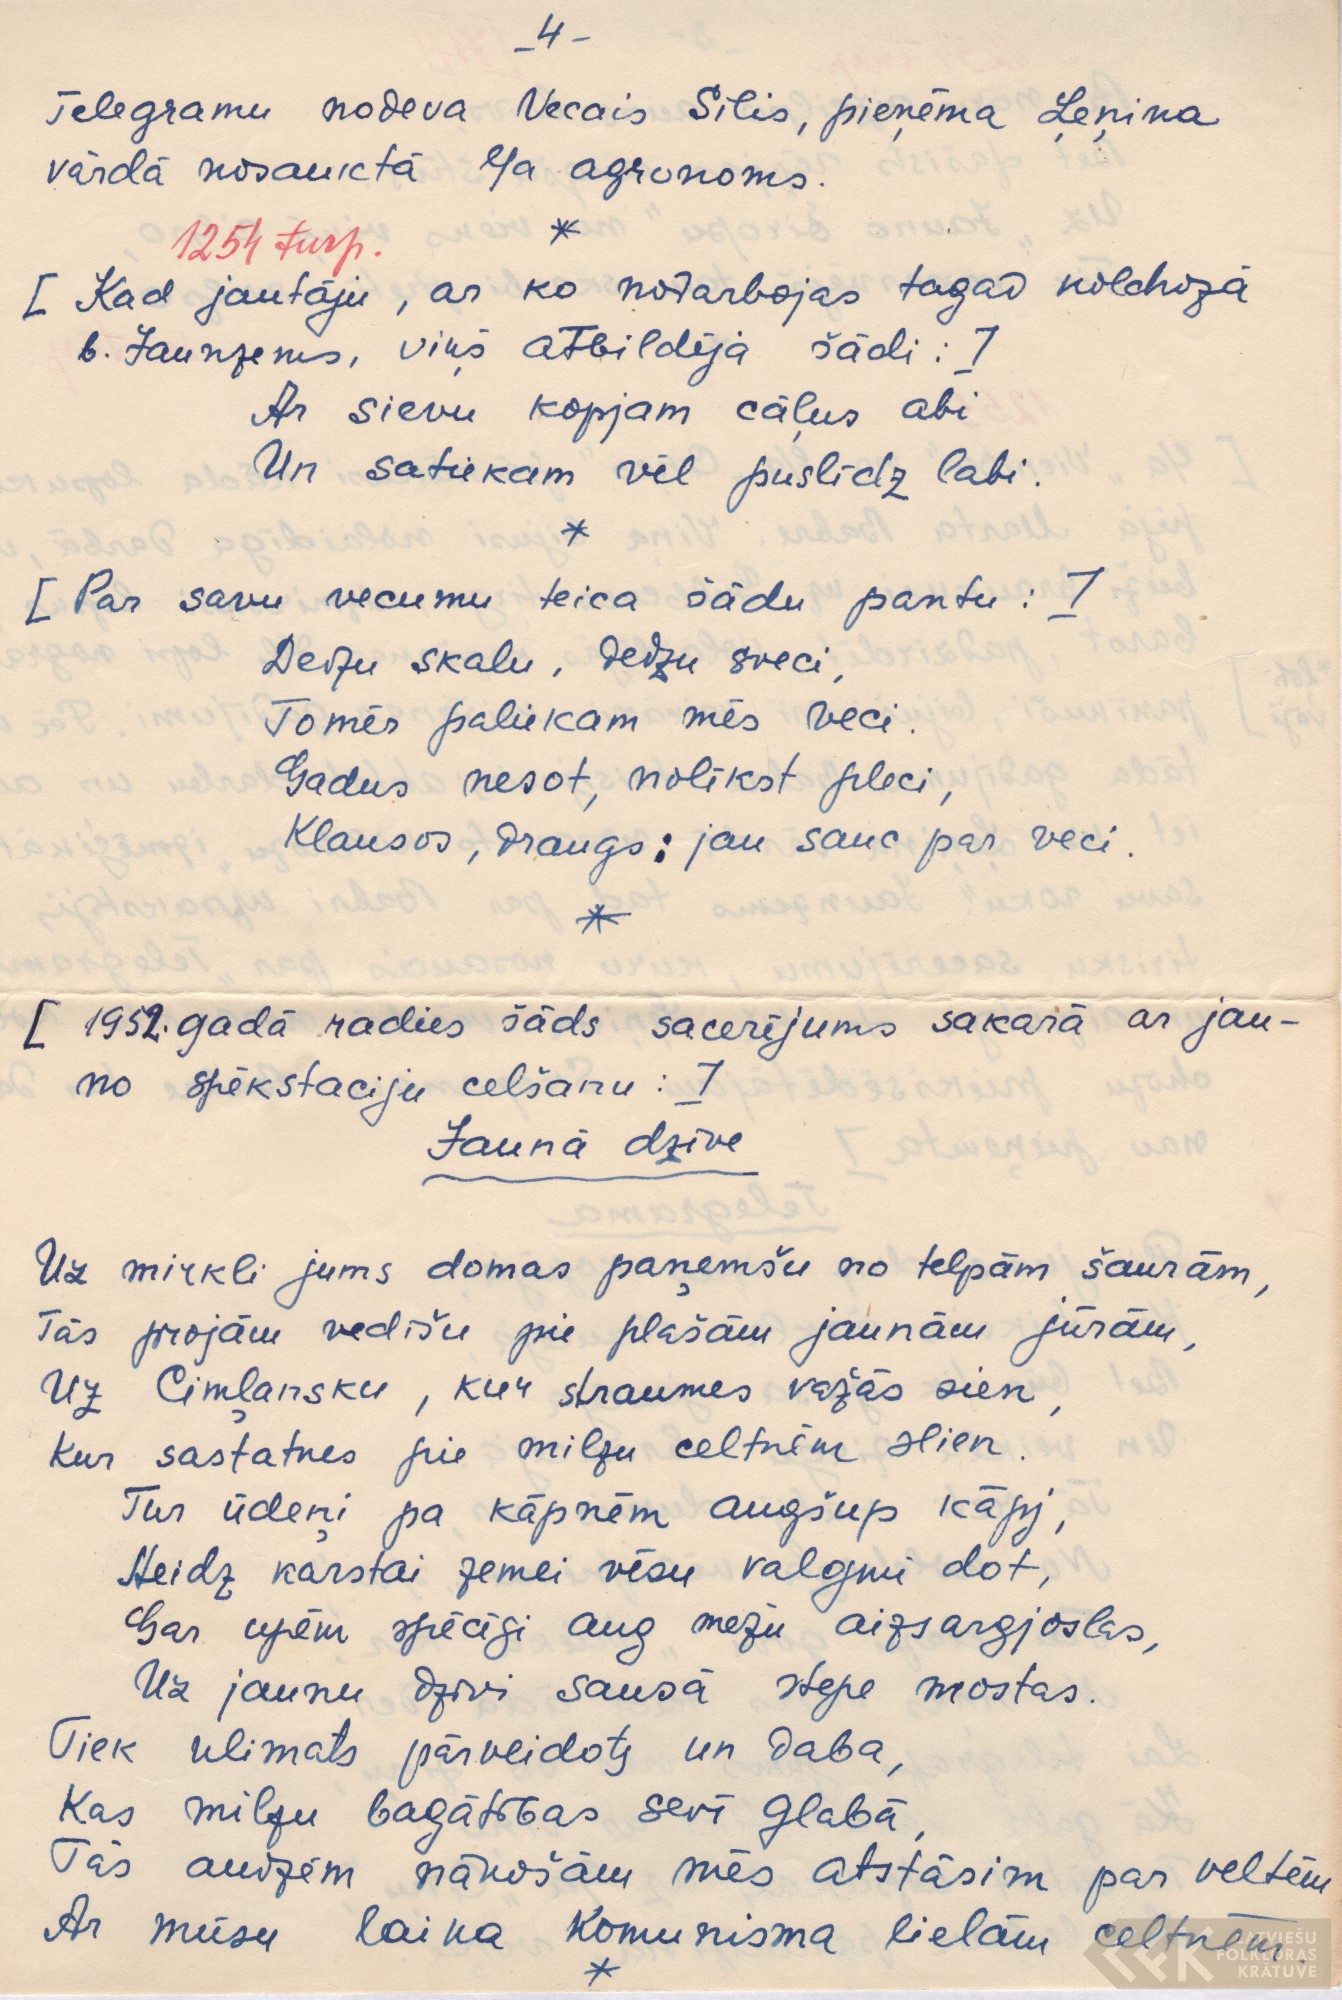 -4-
Telegramu nodeva Vecais Silis, pieņēma Ļeņina
vārdā nosauktā l/a agronoms.
*
1254 turp.
[ Kad jautāju, ar ko nodarbojas tagad kolchozā
b. Jaunzems, viņš atbildēja šādi: ]
Ar sievu kopjam cāļus abi
Un satiekam vēl puslīdz labi.
*
[ Par savu vecumu teica šādu pantu: ]
Dedzu skalu, dedzu sveci,
Tomēr paliekam mēs veci.
Gadus nesot, nolīkst pleci,
Klausos, draugs: jau sauc par veci.
*
[ 1952. gadā radies šāds sacerējums sakarā ar jau-
no spēkstaciju celšanu: ]
Jaunā dzīve
Uz mirkli jums domas paņemšu no telpām šaurām,
Tās projām vedīšu pie plašām jaunām jūrām,
Uz Cimļansku, kur straumes važās sien,
Kur sastatnes pie milzu celtnēm slien.
Tur ūdeņi pa kāpnēm augšup kāpj,
Steidz karstai zemei vēsu valgmi dot,
Gar upēm spēcīgi aug mežu aizsargjoslas,
Uz jaunu dzīvi sausā stepe mostas.
Tiek klimats pārveidots un daba,
Kas milzu bagātības sevī glabā,
Tās audzēm nākošām mēs atstāsim par veltēm
Ar mūsu laika komunisma lielām celtnēm.
*
LATVIEŠU
FOLKLORAS
KRĀTUVE